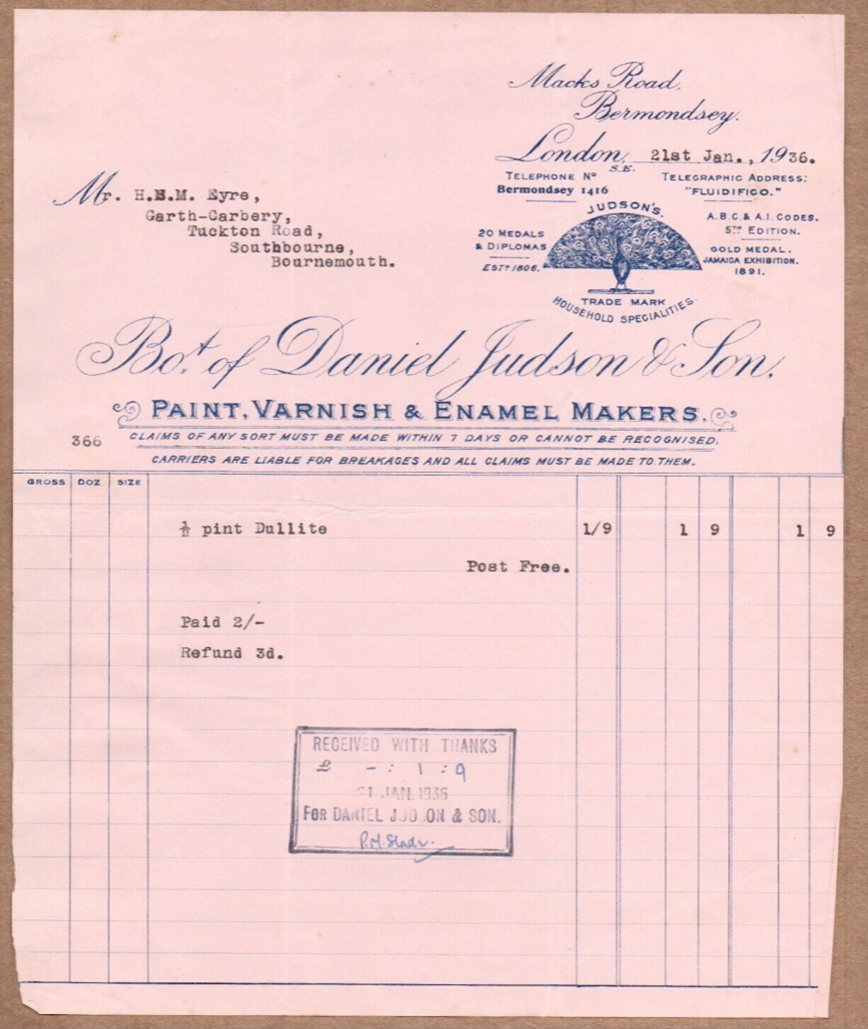 Macks Road,
Bermondsey.
London, S.E. 21st Jan., 1936.
TELEPHONE Nº
Bermondsey 1416
TELEGRAPHIC ADDRESS:
"FLUIDIFICO."
Mr. H.B.M. Eyre,
Garth-Carbery,
Tuckton Road,
Southbourne,
Bournemouth.
JUDSON'S.
20 MEDALS
& DIPLOMAS
ESTD 1806.
A.B.C. & A.I. CODES.
5TH EDITION.
GOLD MEDAL.
JAMAICA EXHIBITION.
1891.
TRADE MARK
HOUSEHOLD SPECIALITIES.
Bot. of Daniel Judson & Son.
PAINT, VARNISH & ENAMEL MAKERS.
366
CLAIMS OF ANY SORT MUST BE MADE WITHIN 7 DAYS OR CANNOT BE RECOGNISED.
CARRIERS ARE LIABLE FOR BREAKAGES AND ALL CLAIMS MUST BE MADE TO THEM.
GROSS DOZ SIZE
½ pint Dullite 1/9 1 9 1 9
Post Free.
Paid 2/-
Refund 3d.
RECEIVED WITH THANKS
£ - : 1 : 9
21 JAN. 1936
FOR DANIEL JUDSON & SON.